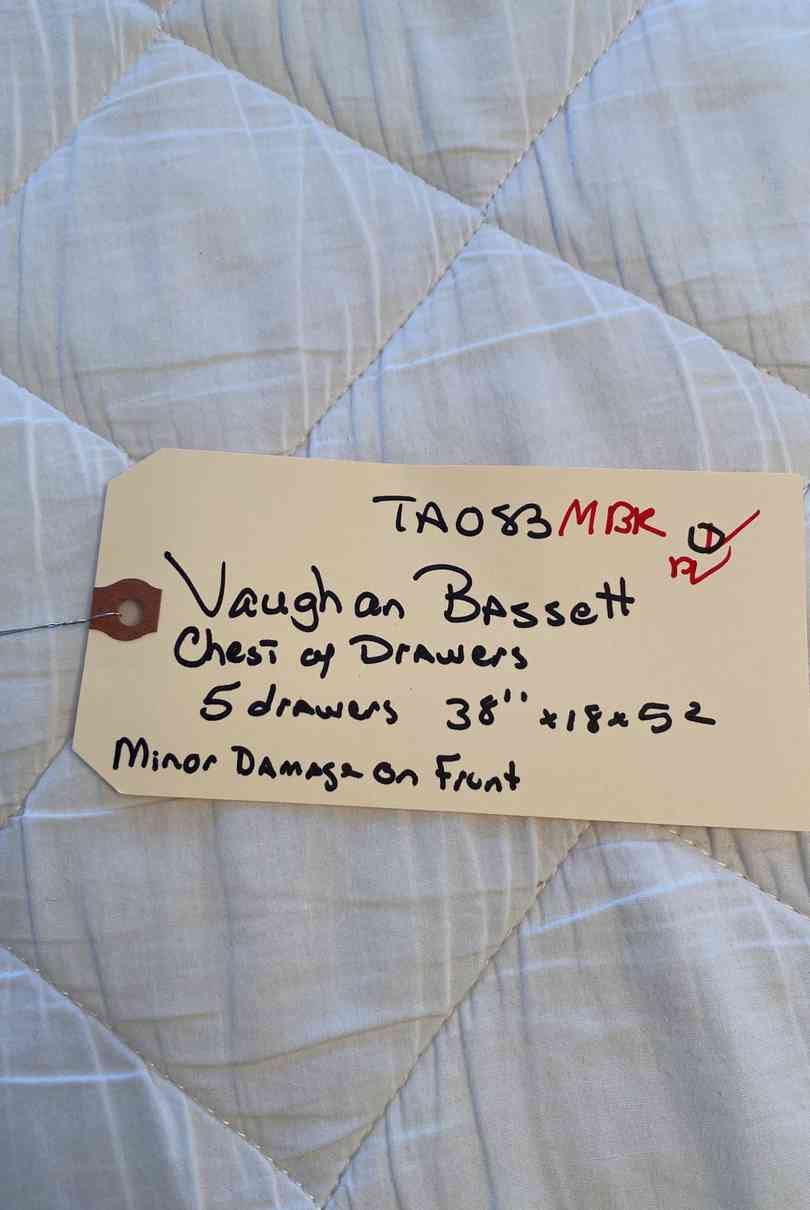 TA083 MBR
Vaughan Bassett
Chest of Drawers
5 drawers 38" x 18 x 52
Minor Damage on Front